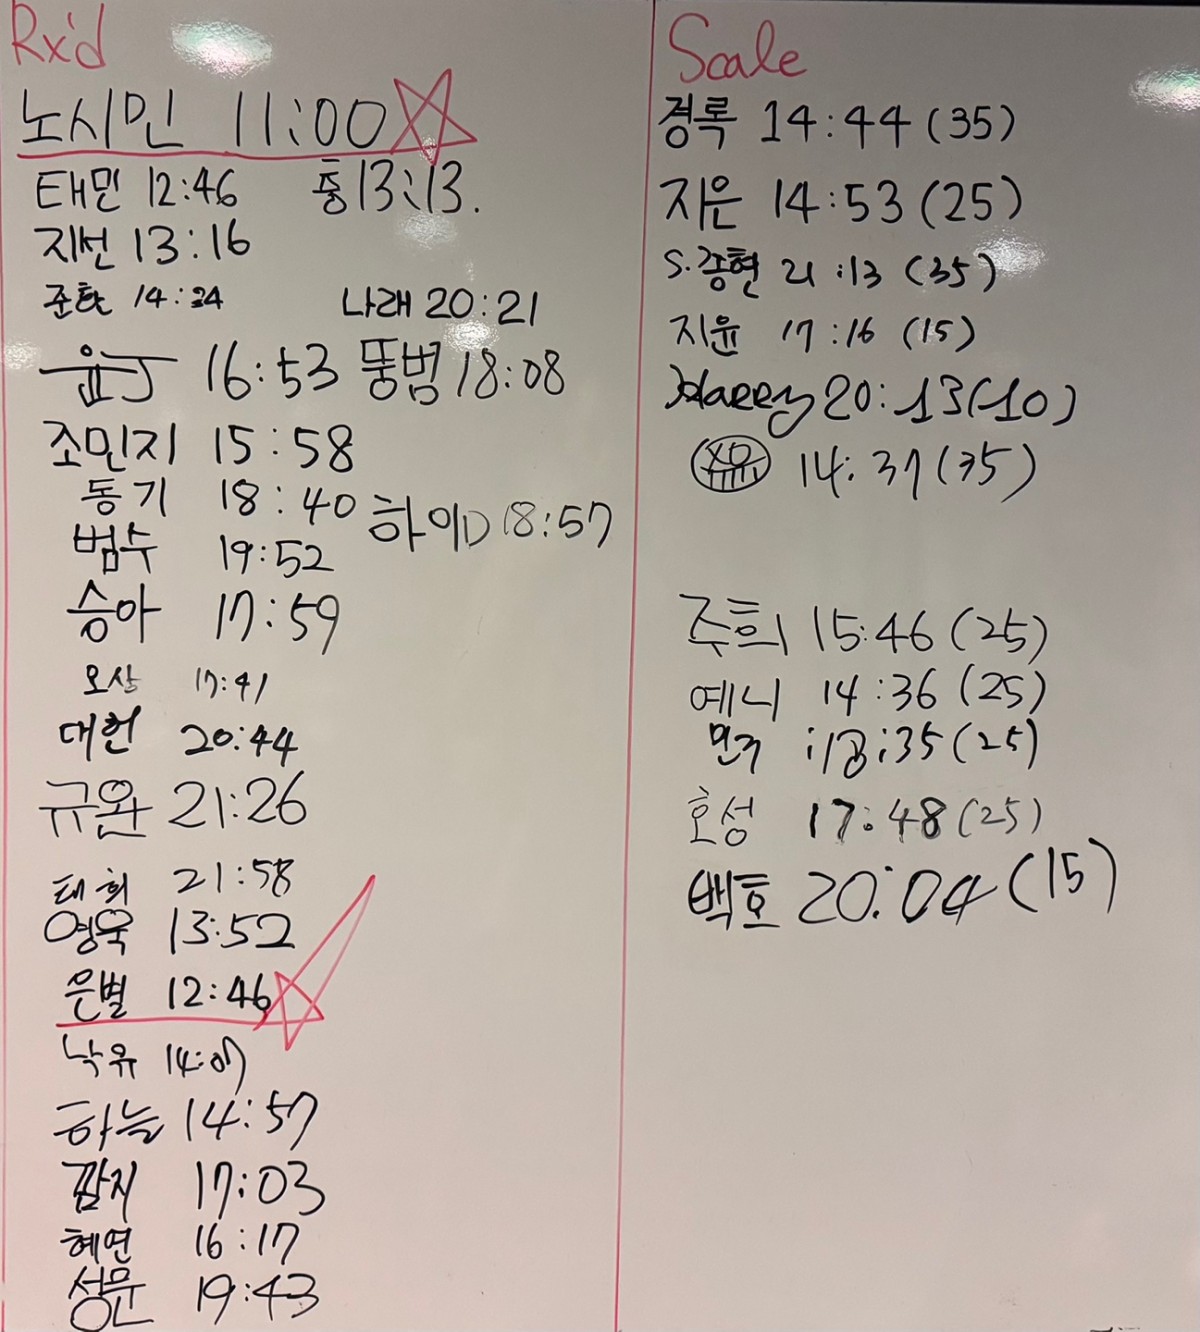 Rx'd
노시민 11:00
태민 12:46 퉁 13:13.
지선 13:16
준환 14:24 나래 20:21
윤J 16:53 뚱범 18:08
조민지 15:58
동기 18:40
하이D 18:57
범수 19:52
승아 17:59
오상 17:41
대헌 20:44
규완 21:26
태희 21:58
영욱 13:52
은별 12:46
낙유 14:07
하늘 14:57
깜지 17:03
혜연 16:17
성문 19:43
Scale
경록 14:44 (35)
지은 14:53 (25)
S.종현 21:13 (35)
지윤 17:16 (15)
Harry 20:13 (10)
14:37 (35)
주희 15:46 (25)
예니 14:36 (25)
민주 :13:35 (25)
호성 17:48 (25)
백호 20:04 (15)